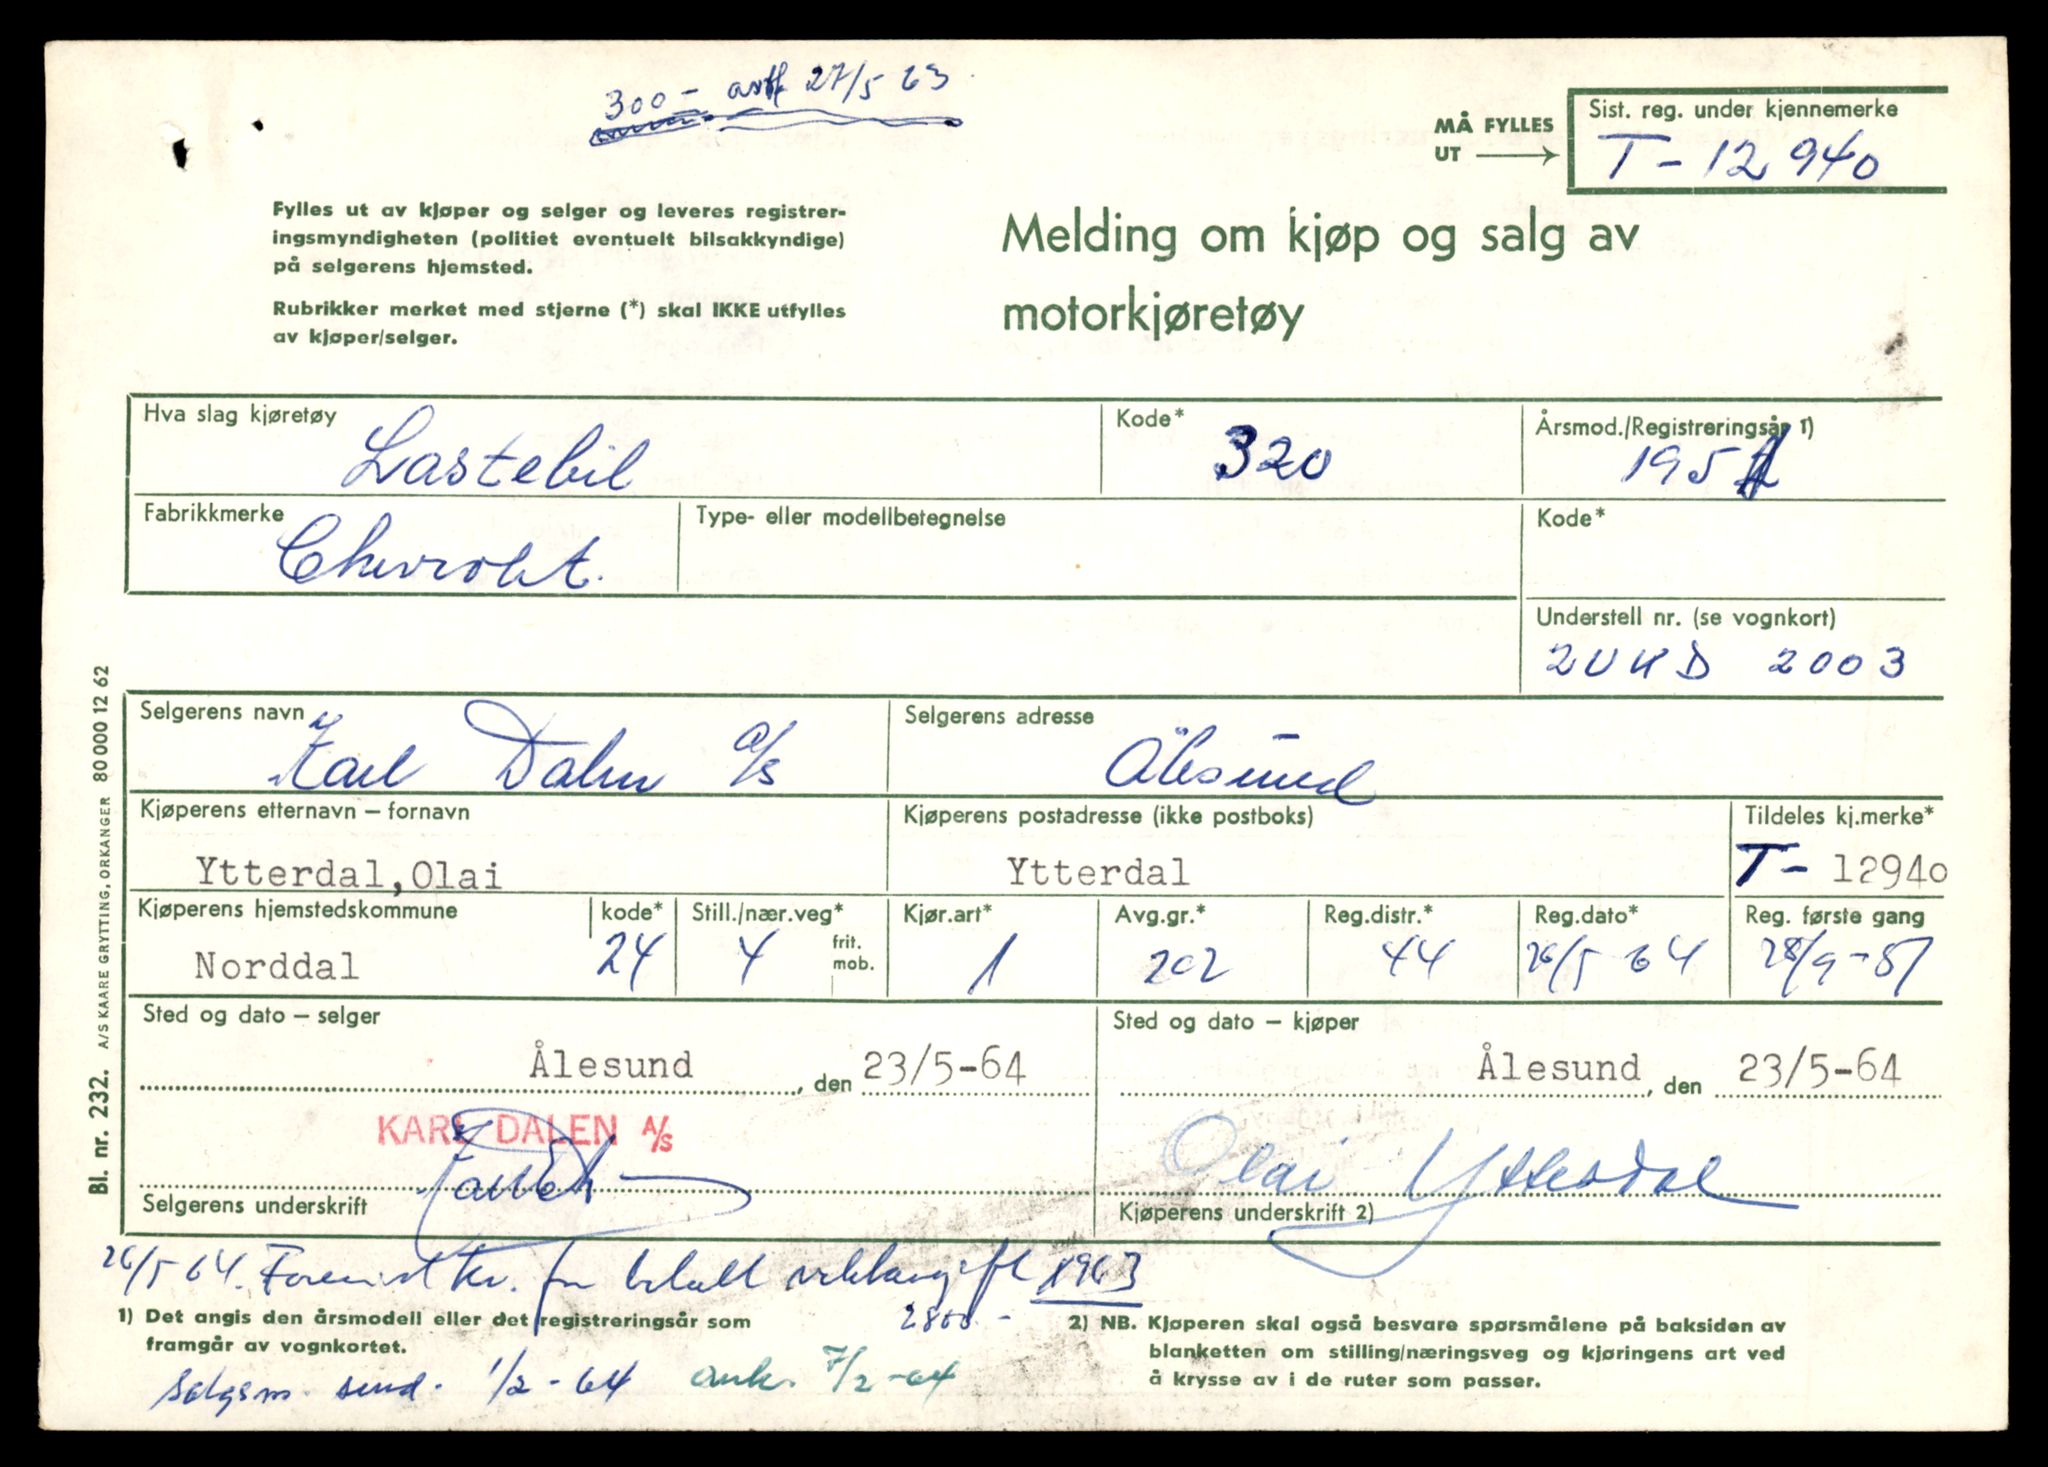 300- avg 27/5 63
MÅ FYLLES UT
Sist. reg. under kjennemerke
T-12940
Fylles ut av kjøper og selger og leveres registrer-
ingsmyndigheten (politiet eventuelt bilsakkyndige)
på selgerens hjemsted.
Rubrikker merket med stjerne (*) skal IKKE utfylles
av kjøper/selger.
Melding om kjøp og salg av
motorkjøretøy
Hva slag kjøretøy
Lastebil
Kode*
320
Årsmod./Registreringsår 1)
195
Fabrikkmerke
Chevrolet.
Type- eller modellbetegnelse
Kode*
Understell nr. (se vognkort)
2UKD 2003
Selgerens navn
Karl Dalen a/s
Selgerens adresse
Ålesund
Kjøperens etternavn – fornavn
Ytterdal,Olai
Kjøperens postadresse (ikke postboks)
Ytterdal
Tildeles kj.merke*
T- 12940
Kjøperens hjemstedskommune
Norddal
kode*
24
Still./nær.veg*
4
frit.
mob.
Kjør.art*
1
Avg.gr.*
202
Reg.distr.*
44
Reg.dato*
26/5 64
Reg. første gang
28/9-51
Sted og dato – selger
Ålesund, den 23/5-64
Sted og dato – kjøper
Ålesund, den 23/5-64
KARL DALEN A/S
Selgerens underskrift
Olai Ytterdal
Kjøperens underskrift 2)
26/5 64. Forevist kv. for betalt vektavgift 1963
2800.-
1) Det angis den årsmodell eller det registreringsår som
framgår av vognkortet.
2) NB. Kjøperen skal også besvare spørsmålene på baksiden av
blanketten om stilling/næringsveg og kjøringens art ved
å krysse av i de ruter som passer.
Selgsm. send. 1/2-64 ank. 7/2-64
Bl. nr. 232. A/S KAARE GRYTTING, ORKANGER 80 000 12 62